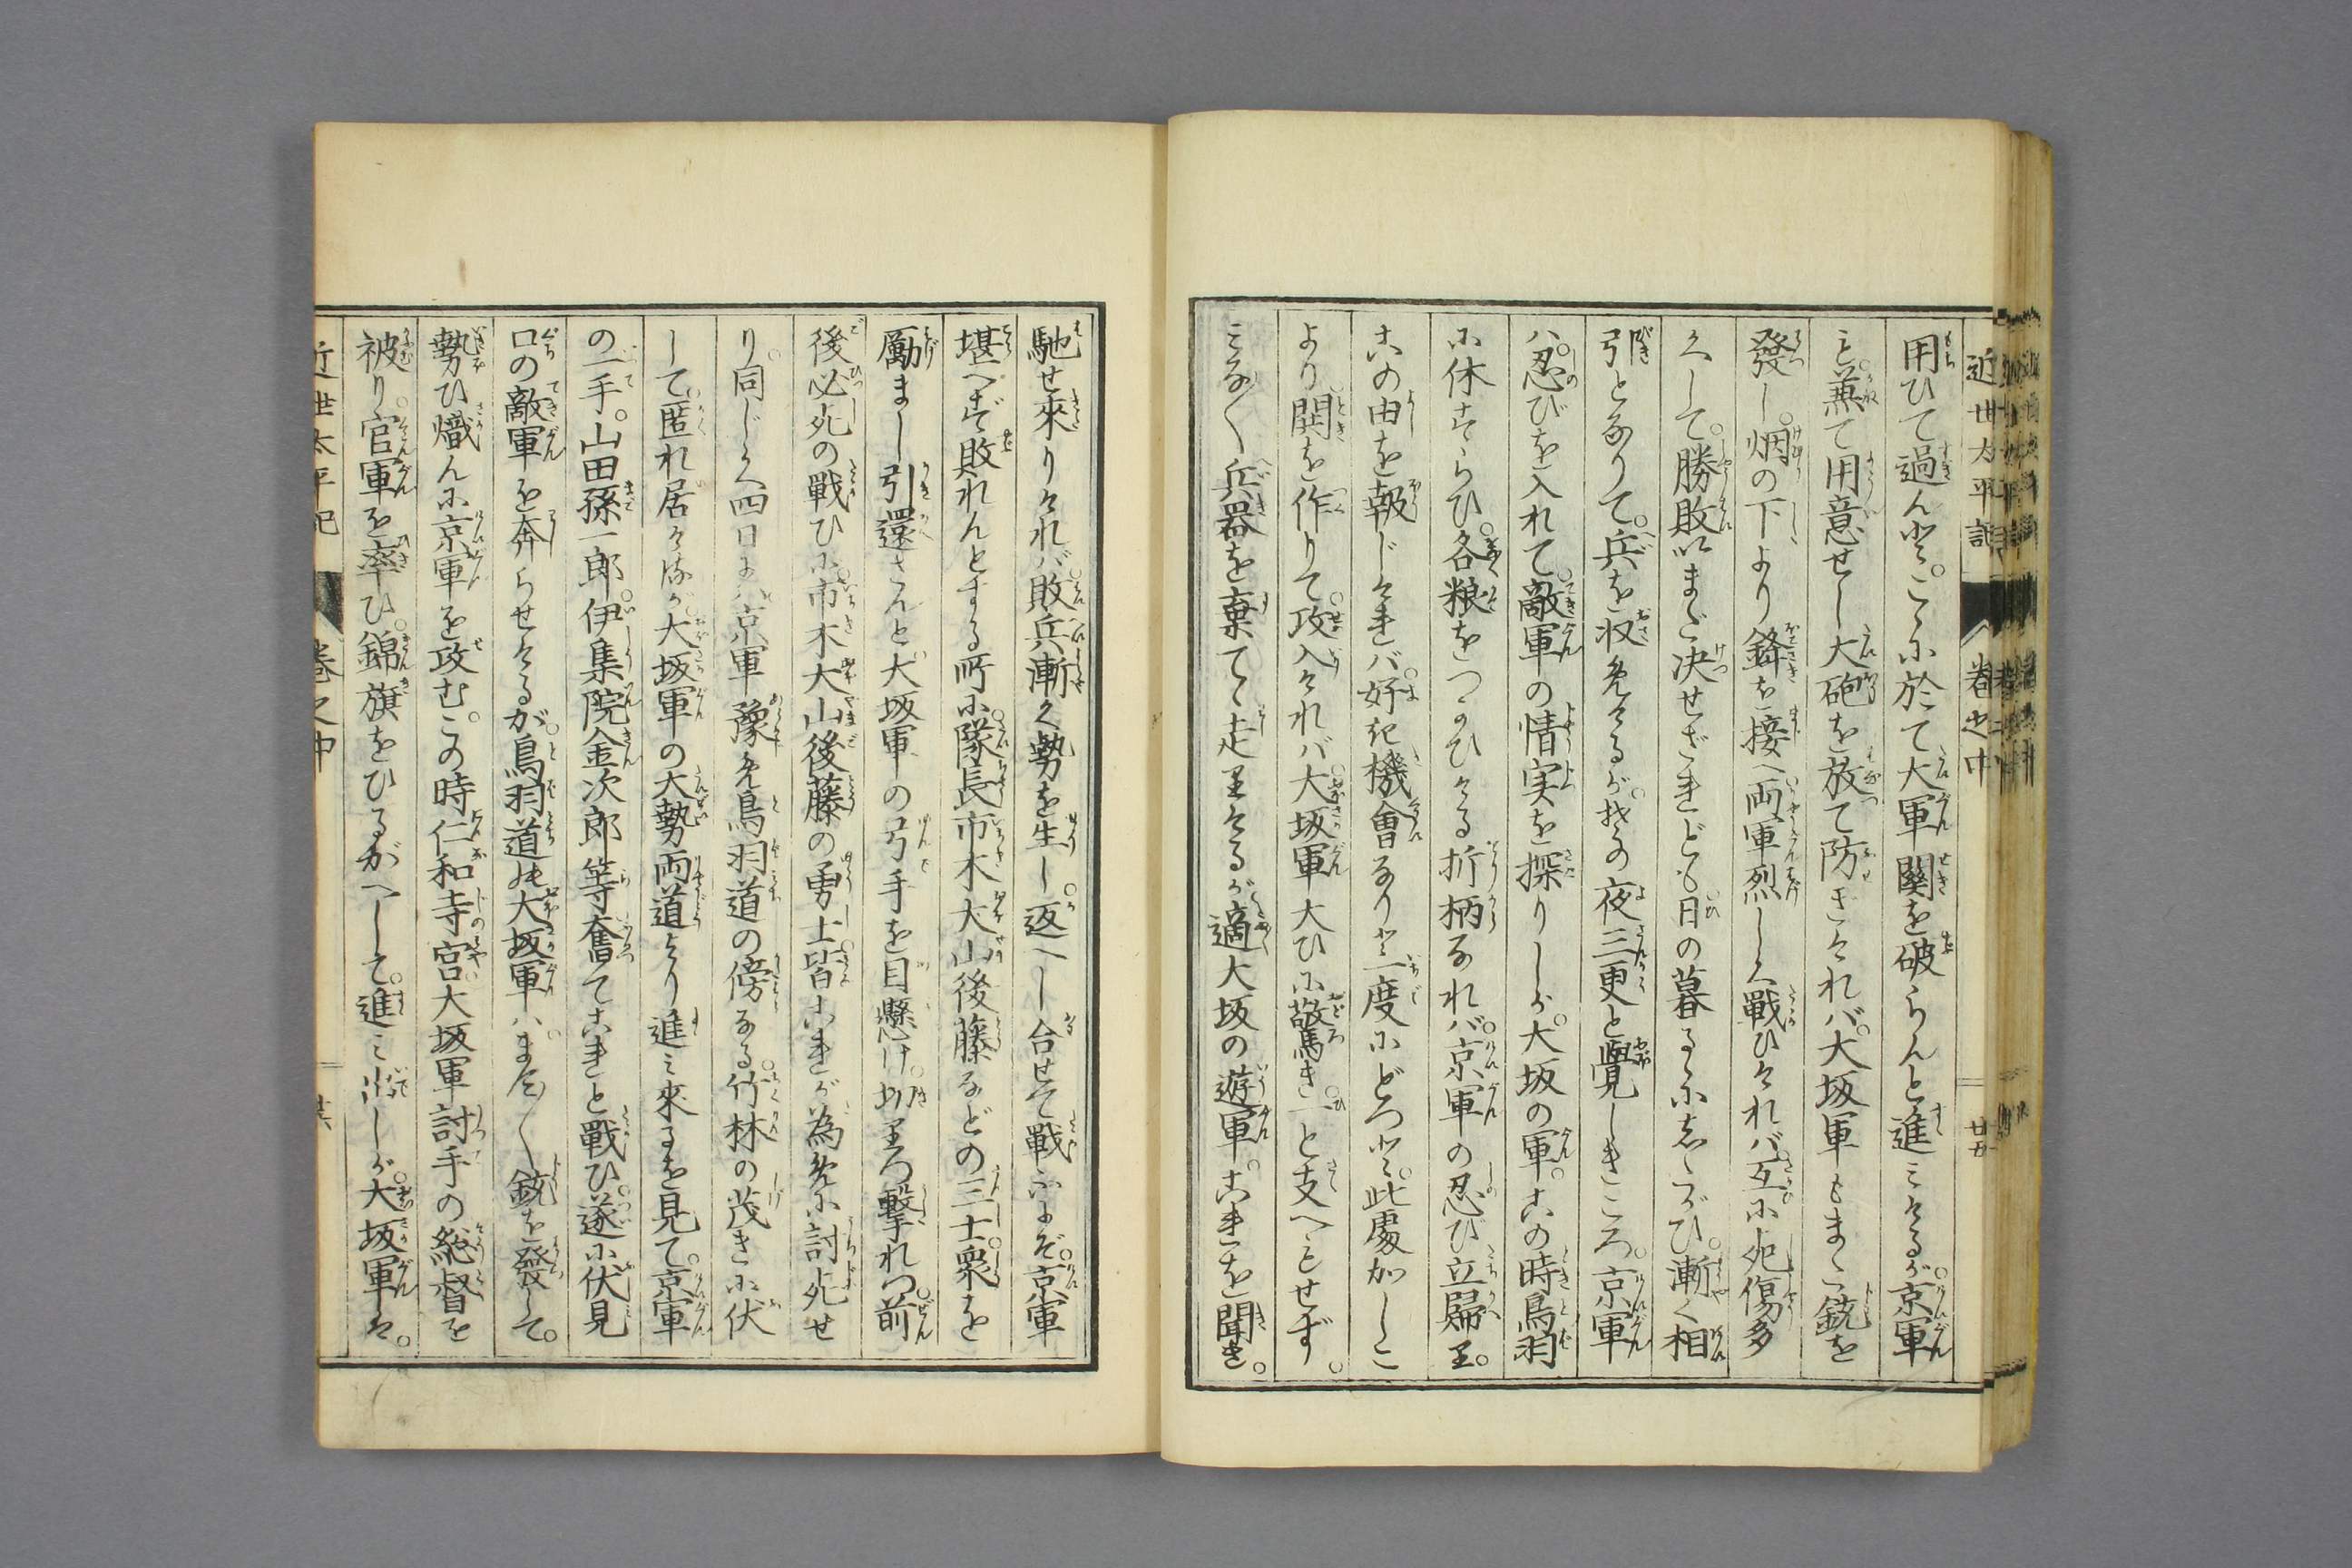 近世太平記 巻之中 廿五
用ひて過んとこゝに於て大軍關を破らんと進みけるが。京軍
も兼て用意せし大砲を放て防ぎければ。大坂軍もまた銃を
發し。烟の下より鋒を接へ。両軍烈しく戰ひければ。互に死傷多
くして。勝敗いまだ决せざれども。日の暮るゝに志たがひ。漸く相
引となりて。兵を収めけるが。其の夜三更と覺しきころ。京軍
ハ忍びを入れて。敵軍の情実を探りしが。大坂の軍。この時鳥羽
に休すらひ。各粮をつかひける折柄なれバ。京軍の忍び立歸り。
この由を報じければ。好き機會なりと。一度にどつと。此處かしこ
より鬨を作りて。攻入ければ。大坂軍大ひに驚き。一と支へもせず。
みな〳〵兵器を棄てゝ走りけるが。適大坂の遊軍。これを聞き。
馳せ來りければ。敗兵漸く勢を生し。返へし合せて戰ふにぞ。京軍
堪へず敗れんとする所に。隊長市木大山後藤などの三士。衆を
勵まし引還さんと。大坂軍の弓手を目懸け。切りつ撃れつ。前
後必死の戰ひに。市木大山後藤の勇士皆これが為めに討死せ
り。同じく四日にハ。京軍豫め鳥羽道の傍なる。竹林の茂きに伏
して。匿れ居けるが。大坂軍の大勢両道より進み來るを見て。京軍
の一手。山田孫一郎。伊集院金次郎等奮てこれと戰ひ。遂に伏見
口の敵軍を奔らせけるが。鳥羽道の大坂軍ハます〳〵銃を發して。
勢ひ熾んに京軍を攻む。この時仁和寺宮。大坂軍討手の総督を
被り。官軍を率ひ。錦旗をひるがへして。進み出しが。大坂軍は。
近世太平記 巻之中